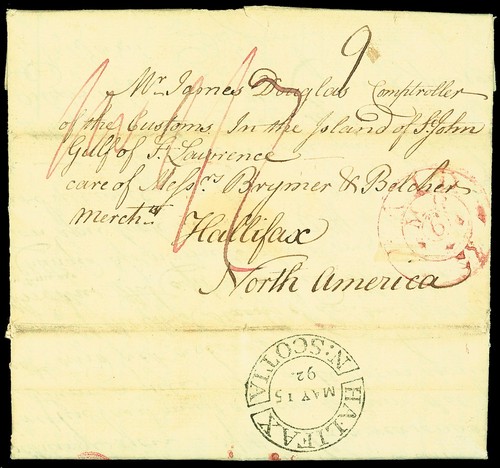 9
Mr. James Douglas Comptroller
of the Customs In the Island of St. John
Gulf of St. Lawrence
care of Messrs Brymer & Belcher
Mercht.s
Hallifax
North America
HALIFAX N: SCOTIA
MAY 15
92.